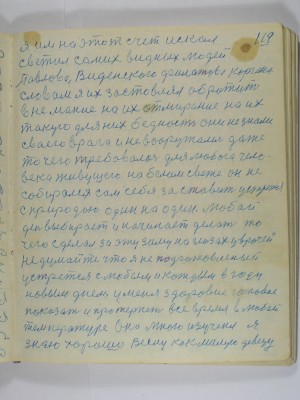 119
зим на этот счет искал
светил самих видных людей
Павлова, Виденского филатова
словам я их заставлял обратит
внемание на их отмирание на их
такую для них бедность они незнали
своего врага и невооружали даже
то чего требовалос для любого чело-
века живущего на белом свете он не
собирался сам себя заставит
с природою один на один. Любой
выбирает и начинает делат то
чего сделал за эту зиму на глазах у врачей
недумайте что я не подготовленый
устрется с любым и каждым в году
новым днем у меня здоровие
показат и все время в любой
температуре Оно много изучено я
знаю хорошо Весну как малую девицу